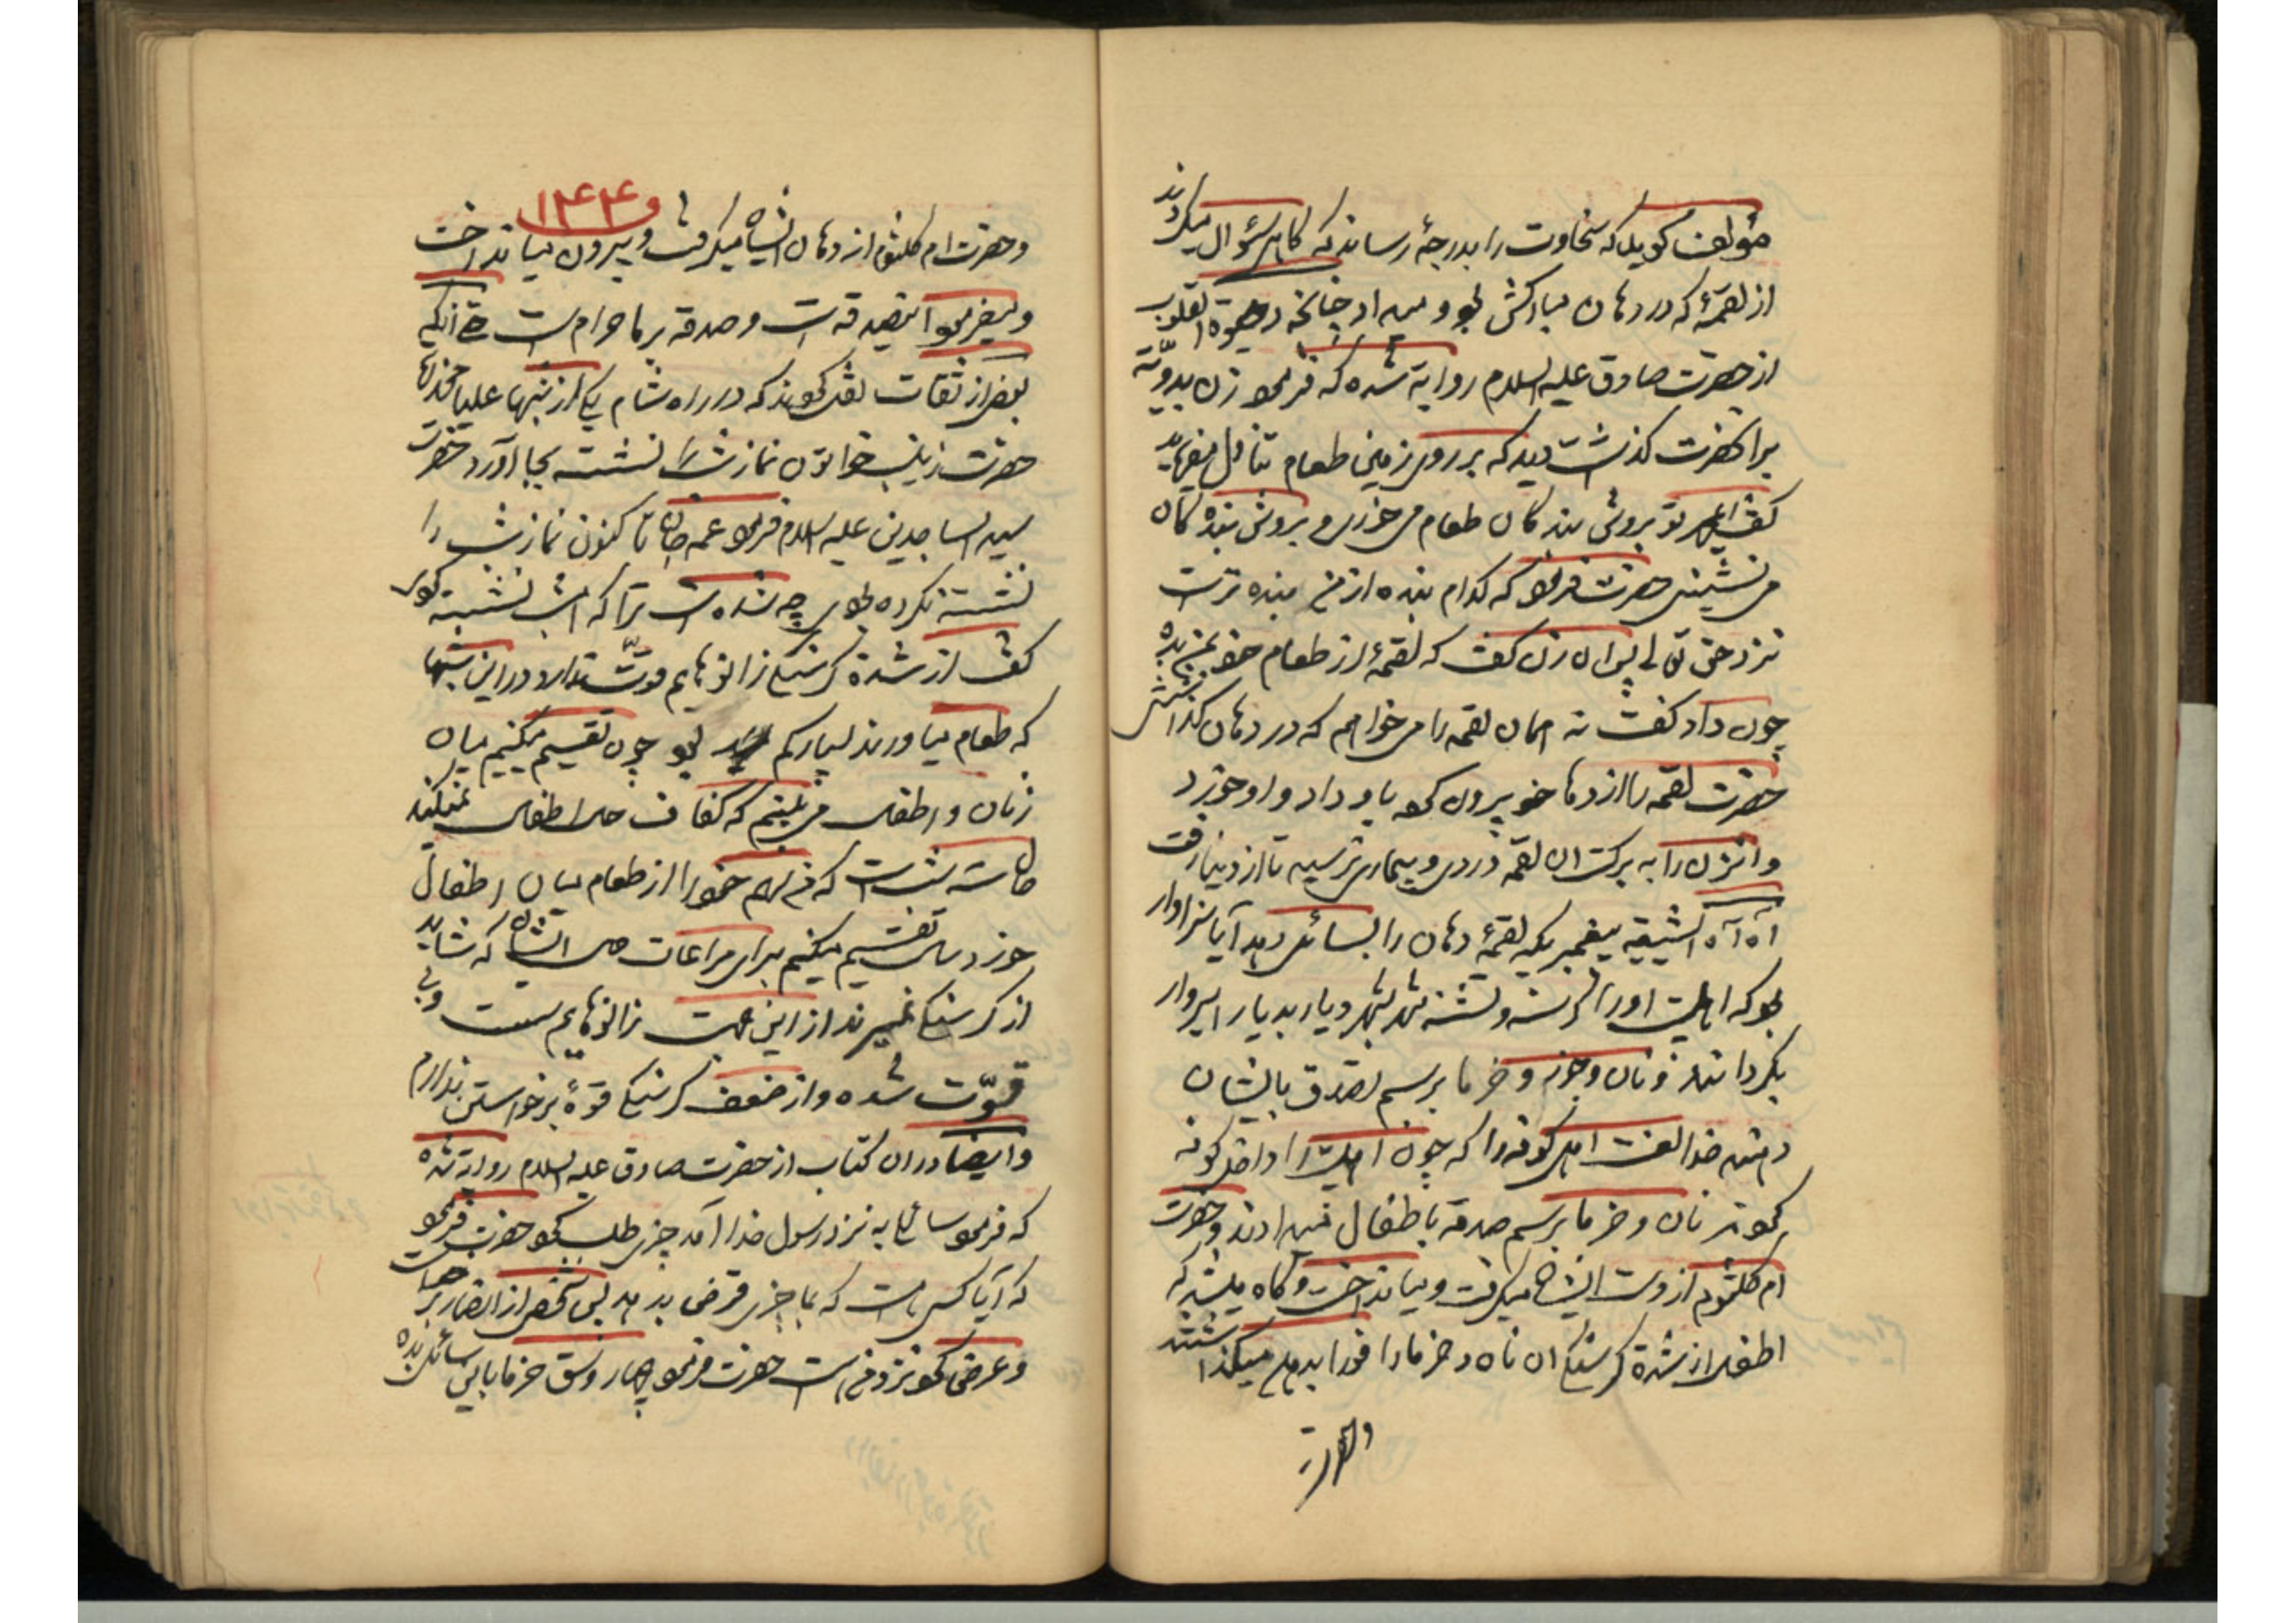 مؤلف گوید که سخاوت را بدرجهٔ رساند که گاهی سؤال میکردند
از لقمهٔ که در دهان مبارکش بود و میداد چنانچه در حیوة القلوب
از حضرت صادق علیه السلام روایة شده که فرمود زن بدویّة
بر آنحضرت گذشت دید که بر روی زمین طعام تناول میفرماید
گفت تو بروش بندگان طعام می خوری و بروش بنده گان
می نشینی حضرت فرمود که کدام بنده از من بنده تر است
نزد حق تعالی پس آن زن گفت که لقمهٔ از طعام خود بمن بده
چون داد گفت نه همان لقمه را می خواهم که در دهان گذاشتی
حضرت لقمه را از دهان خود بیرون کرد باو داد و او خورد
و آنزن را به برکت آن لقمه دردی و بیماری نرسید تا از دنیا رفت
آه آه الشیعه پیغمبریکه لقمهٔ دهان را بسائل دهد آیا سزاوار
بود که اهلبیت او را گرسنه و تشنه شهر بشهر و دیار بدیار اسیروار
بگردانند و نان و جوز و خرما برسم تصدق بایشان
دهند خدا لعنت اهل کوفه را که چون اهلبیت را داخل کوفه
کردند نان و خرما برسم صدقه باطفال میدادند و حضرت
ام کلثوم از دست ایشان میگرفت و میانداخت و گاه میشد که
اطفال از شدة گرسنگی آن نان و خرما را فورا بدهن میگذاشتند
و حضرت
۱۴۴
و حضرت ام کلثوم از دهان ایشان میگرفت و بیرون میانداخت
و میفرمود این تصدقست و صدقه بر ما حرام است حتی آنکه
بعض از ثقات نقل کردند که در راه شام یکی از شبها علیا مخدره
حضرت زینب خواتون نماز شب را نشسته بجا آورد حضرت
سید الساجدین علیه السلام فرمود عمه جان تا کنون نماز شب را
نشسته نکرده بودی چه شده است ترا که امشب نشسته کردی
گفت از شدة گرسنگی زانوهایم قوّت ندارد در این شبها
که طعام میاورند بسیار کم بود چون تقسیم میکنیم میان
زنان و اطفال می بینم که کفاف حال اطفال نمیکند
سه شب است که من سهم خود را از طعام میان اطفال
خورد سال تقسیم میکنیم برای مراعات حال ایشان که شاید
از گرسنگی نمیرند از این جهت زانوهایم سست و بی
قوّت شده و از ضعف گرسنگی قوهٔ برخواستن ندارم
و ایضا در آن کتاب از حضرت صادق علیه السلام روایة شده
که فرمود سائلی به نزد رسول خدا آمد چیزی طلب کرد حضرت فرمود
که آیا کسی هست که بما چیزی قرض بدهد پس شخص از انصار برخواست
و عرض کرد نزد من است حضرت فرمود چهار وسق خرما باین سائل بده